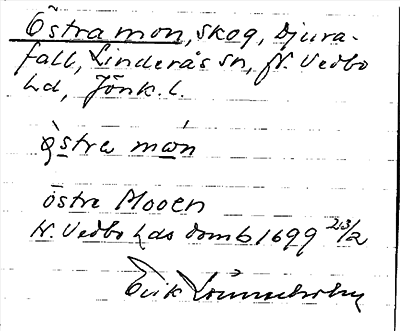 Östra mon, skog, Djura-
fall, Linderås sn, N. Vedbo
hd, Jönk. l.
östra mon
östre Mooen
N. Vedbo hds domb 1699 23/2
Erik